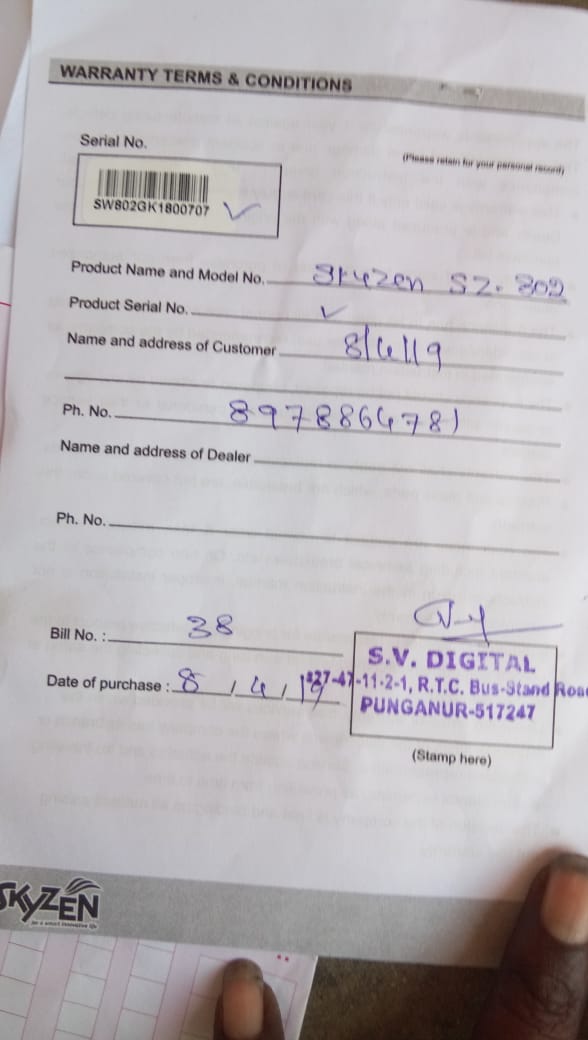 WARRANTY TERMS & CONDITIONS
Serial No.
(Please retain for your personal record)
SW802GK1800707
Product Name and Model No. Skyzen SZ. 802
Product Serial No.
Name and address of Customer 8/4/19
Ph. No. 8978864781
Name and address of Dealer
Ph. No.
Bill No. : 38
Date of purchase : 8 / 4 / 19
S.V. DIGITAL
#27-47-11-2-1, R.T.C. Bus-Stand Road
PUNGANUR-517247
(Stamp here)
SKYZEN